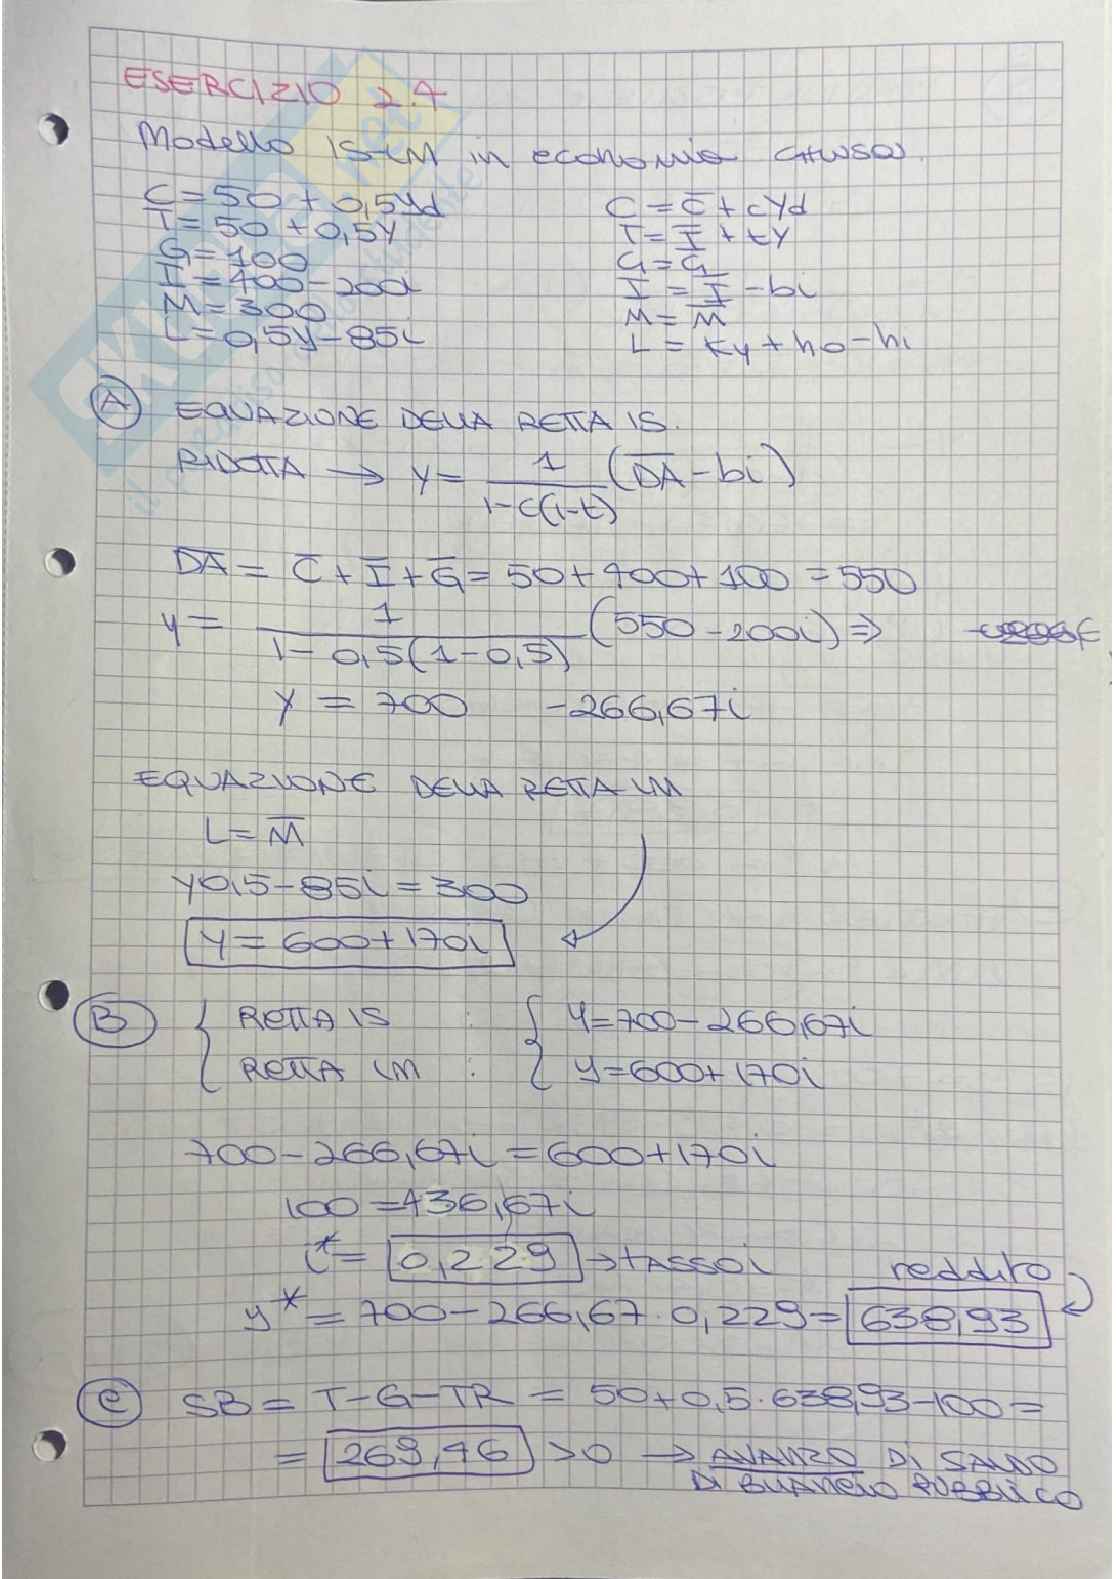 ESERCIZIO 2.4
Modello IS-LM in economia chiusa.
C=50+0,5Yd C=C̅+cYd
T=50+0,5Y T=T̅+tY
G=100 G=G̅
I=400-200i I=I̅-bi
M=300 M=M̅
L=0,5y-85i L=Ky+ho-hi
A EQUAZIONE DELLA RETTA IS.
RIDOTTA → Y= 1/(1-c(1-t)) (D̅A̅-bi)
D̅A̅=C̅+I̅+G̅=50+400+100=550
y= 1/(1-0,5(1-0,5)) (550-200i) ⇒
Y=700 -266,67i
EQUAZIONE DELLA RETTA LM
L=M̅
y0,5-85i=300
Y=600+170i
B { RETTA IS : { Y=700-266,67i
RETTA LM : y=600+170i
700-266,67i=600+170i
100=436,67i
i*=0,229 → tASSO i
reddito
y*=700-266,67·0,229=638,93
C SB=T-G-TR=50+0,5·638,93-100=
=269,46>0 → AVANZO DI SALDO
DI BILANCIO PUBBLICO